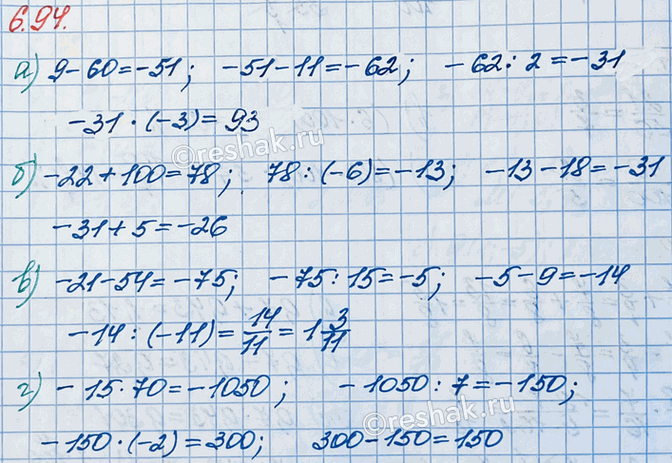 6.94.
а) 9-60=-51; -51-11=-62; -62:2=-31
-31·(-3)=93
©reshak.ru
б) -22+100=78; 78:(-6)=-13; -13-18=-31
-31+5=-26
в) -21-54=-75; -75:15=-5; -5-9=-14
-14:(-11)=14/11=1 3/11
г) -15·70=-1050; -1050:7=-150;
©reshak.ru
-150·(-2)=300; 300-150=150